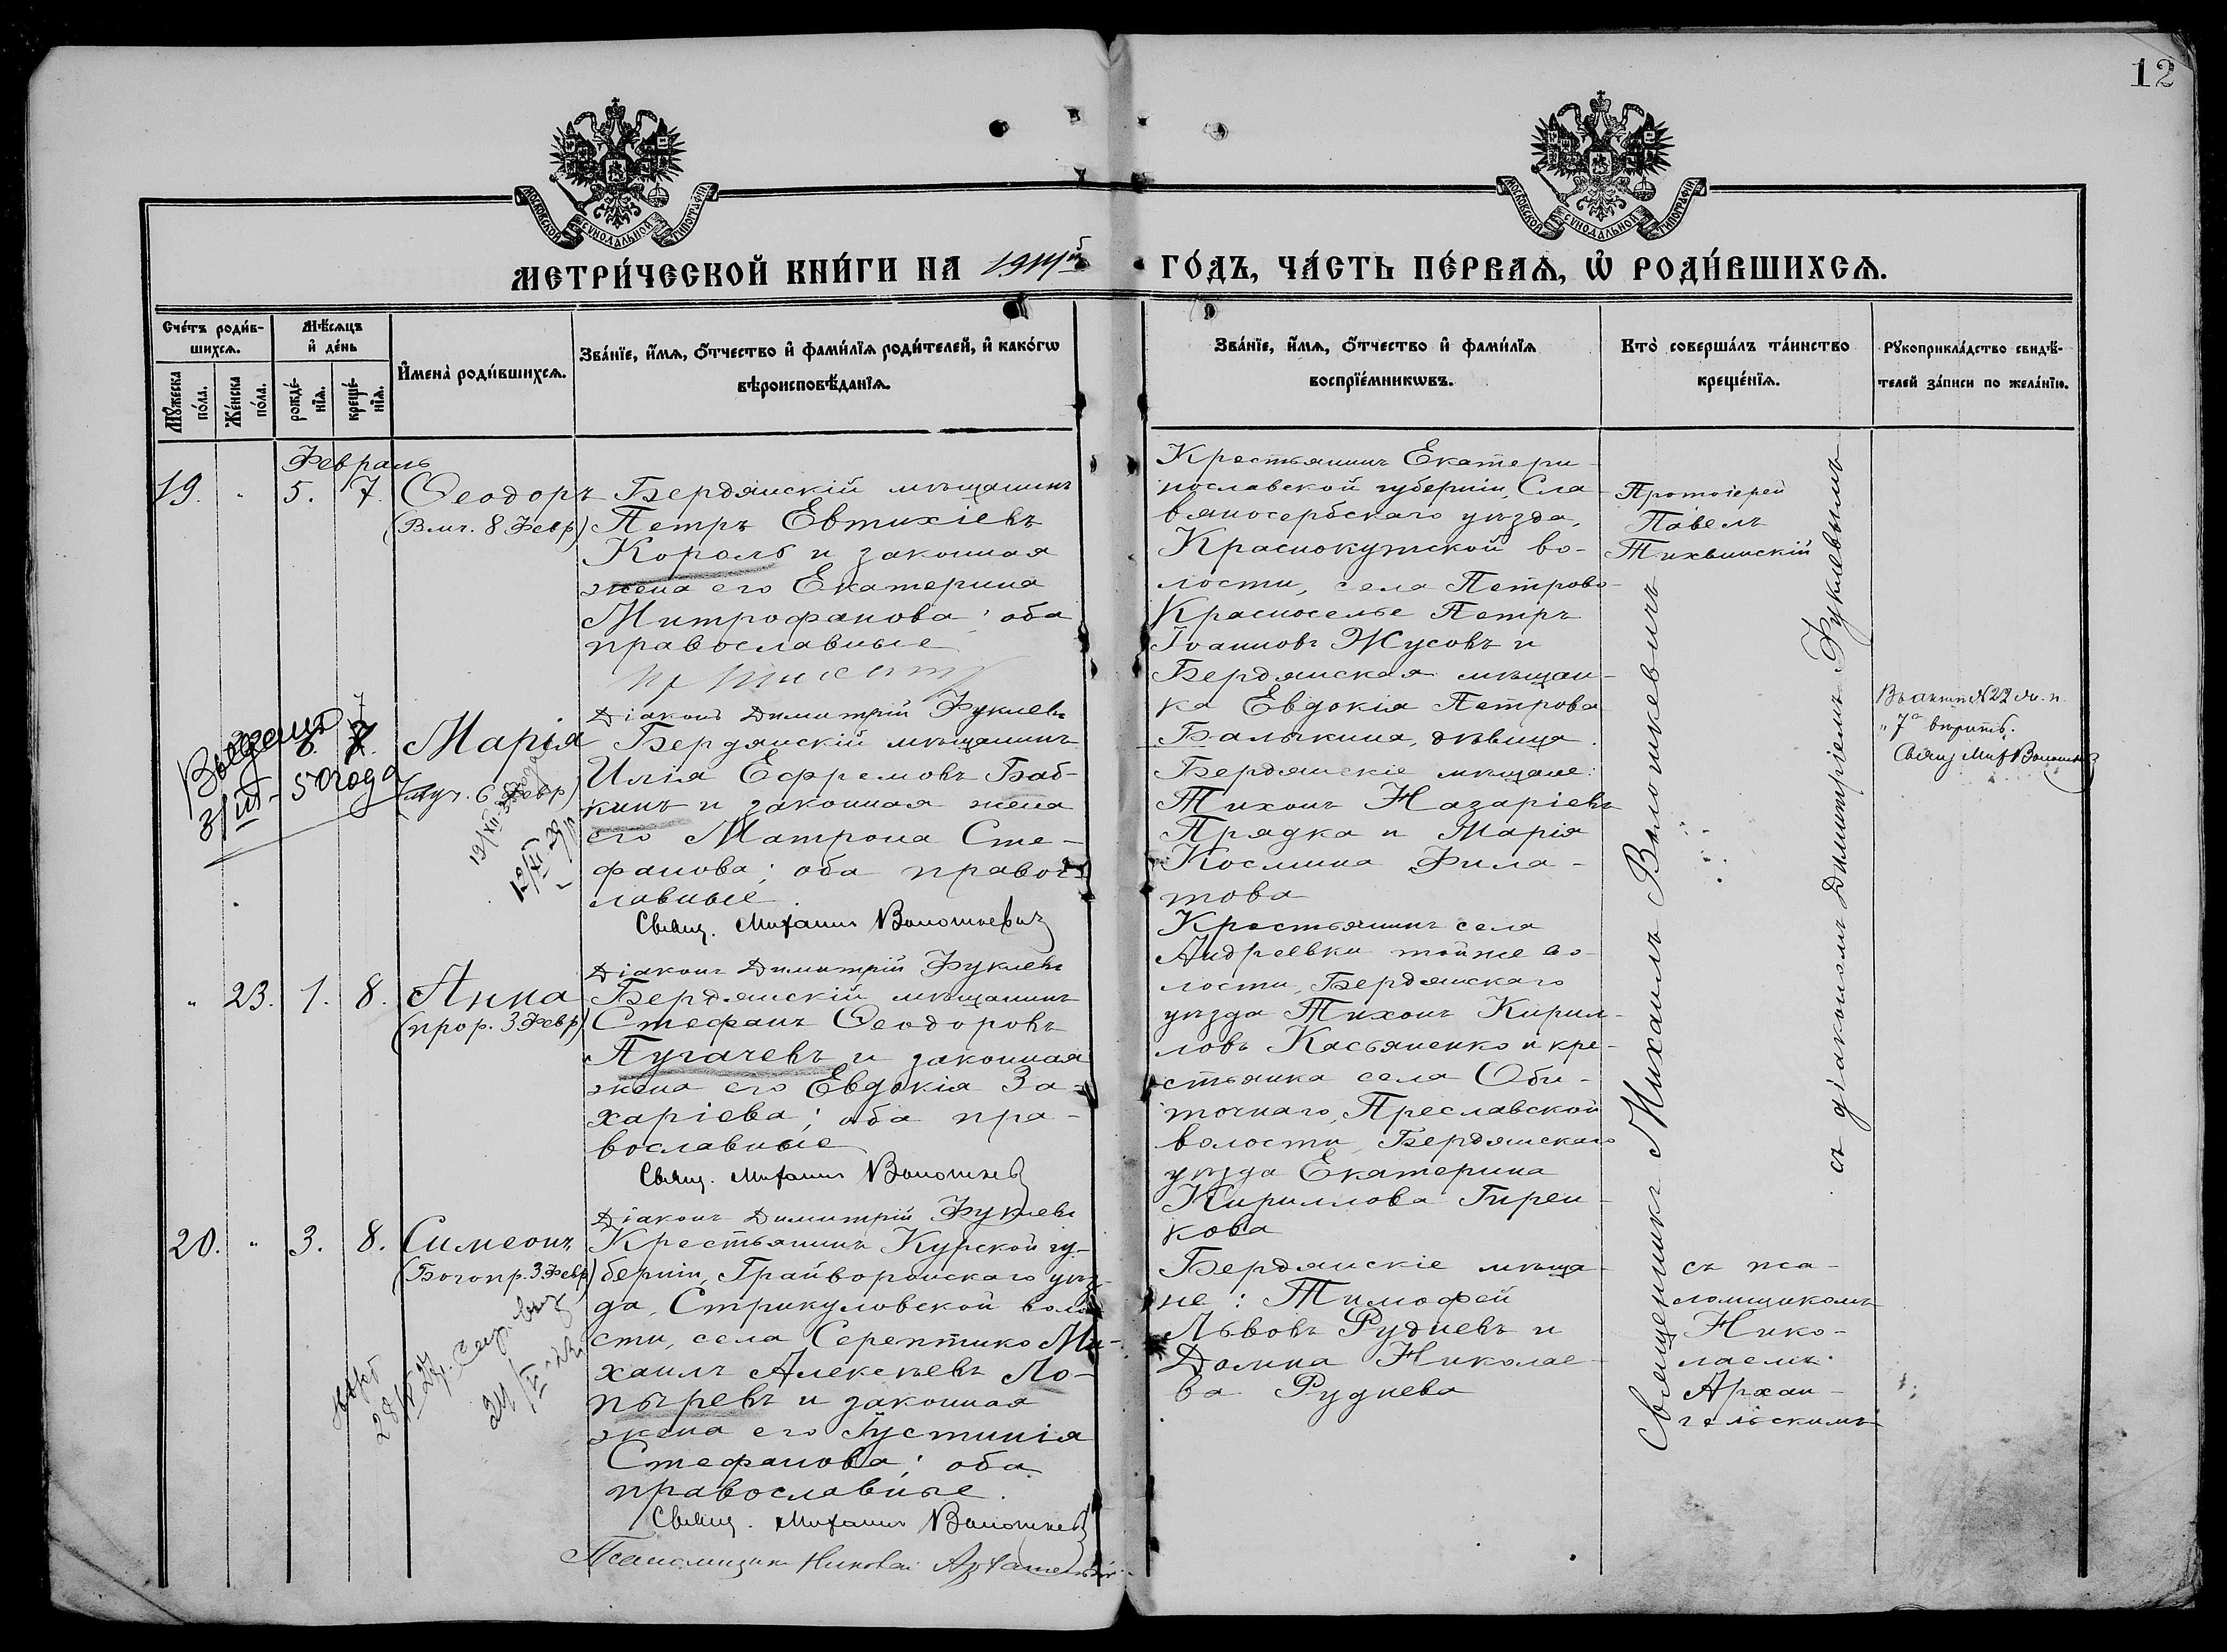 12
МОСКОВСКОЙ СѴНОДАЛЬНОЙ ТИПОГРАФІИ
МОСКОВСКОЙ СѴНОДАЛЬНОЙ ТИПОГРАФІИ
МЕТРИ́ЧЕСКОЙ КНИ́ГИ НА
ГО́ДЪ, ЧА́СТЬ ПЕ́РВАѦ, Ѡ҆ РОДИ́ВШИХСѦ.
Сче́тъ роди́в-
шихсѧ.
Мꙋ́жеска по́ла.
Же́нска по́ла.
Мѣ́сѧцъ
и҆ де́нь
рожде́-
нїѧ.
креще́-
нїѧ.
И҆мена̀ роди́вшихсѧ.
Зва́нїе, и҆́мѧ, ѻ҆́тчество и҆ фами́лїѧ роди́телей, и҆ како́гѡ
вѣроисповѣ́данїѧ.
Зва́нїе, и҆́мѧ, ѻ҆́тчество и҆ фами́лїѧ
воспрїе́мникѡвъ.
Кто̀ соверша́лъ та́инство
креще́нїѧ.
Рꙋкоприкла́дство свидѣ́-
телей за́писи по жела́нїю.
Февраль
19. " 5. 7. Ѳеодоръ
(Влмч. 8 Февр)
Бердянскій мѣщанинъ
Петръ Евтихіевъ
Король и законная
жена его Екатерина
Митрофанова; оба
православные
Крестьянинъ Екатери-
нославской губерніи, Сла-
вяносербскаго уѣзда,
Краснокутской во-
лости, села Петрово-
Красноселье Петръ
Іоанновъ Жусовъ и
Бердянская мѣщан-
ка Евдокія Петрова
Балыкина, дѣвица.
Протоіерей
Павелъ
Тихвинскій
Діаконъ Димитрій Фуклевъ
3/III - 50 года
7
Марія
(муч. 6 Февр)
Бердянскій мѣщанинъ
Илія Ефремовъ Баб-
кинъ и законная жена
его Матрона Сте-
фанова; оба правос-
лавные.
Свящ. Михаилъ Волошкевичъ
Бердянскіе мѣщане:
Тихонъ Назаріевъ
Прядка и Марія
Космина Фила-
това
"7" вѣрить.
Діаконъ Димитрій Фуклевъ
" 23. 1. 8. Анна
(прор. 3 Февр)
Бердянскій мѣщанинъ
Стефанъ Ѳеодоровъ
Пугачевъ и законная
жена его Евдокія За-
харіева; оба пра-
вославные
Свящ. Михаилъ Волошкев
Крестьянинъ села
Андреевки тойже во-
лости, Бердянскаго
уѣзда Тихонъ Кирил-
ловъ Касьяненко и кре-
стьянка села Оби-
точнаго, Преславской
волости, Бердянскаго
уѣзда Екатерина
Кириллова Гирен-
кова
Священникъ Михаилъ Волошкевичъ
съ діакономъ Димитріемъ Фуклевымъ
Діаконъ Димитрій Фуклевъ
20. " 3. 8. Симеонъ
(Богопр. 3 Февр)
Крестьянинъ Курской гу-
берніи, Грайворонскаго уѣз-
да, Стрикуловской воло-
сти, села Ми-
хаилъ Алексѣевъ Ло-
пыревъ и законная
жена его Іустинія
Стефанова; оба
православные.
Свящ. Михаилъ Волошкев
Псаломщикъ Николай Архангельскій
Бердянскіе мѣща-
не: Тимофей
Львовъ Рудневъ и
Домна Николае-
ва Руднева
съ пса-
ломщикомъ
Нико-
лаемъ
Архан-
гельскимъ